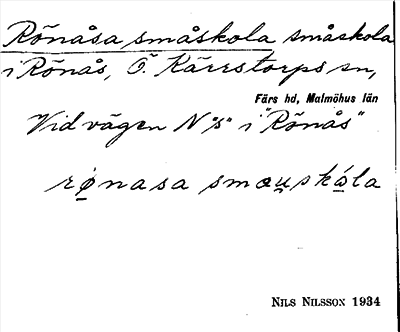 Rönåsa småskola småskola
i Rönås, Ö. Kärrstorps sn,
Färs hd, Malmöhus län
Vid vägen N "S" i "Rönås"
rø̱nasa smæu̱skå̱la
NILS NILSSON 1934